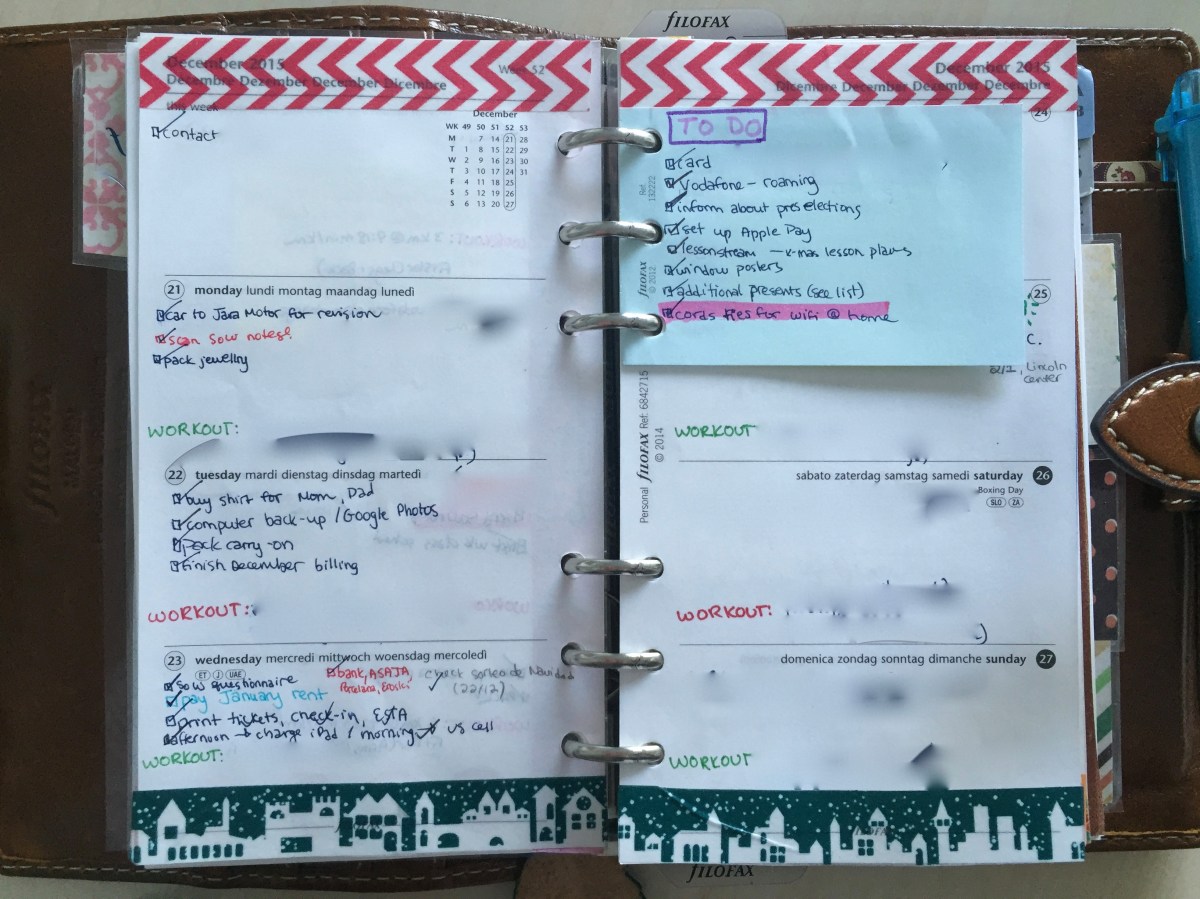 FILOFAX
December 2015
Week 52
Décembre Dezember December Dicembre
this week
contact
December
WK 49 50 51 52 53
M 7 14 21 28
T 1 8 15 22 29
W 2 9 16 23 30
T 3 10 17 24 31
F 4 11 18 25
S 5 12 19 26
S 6 13 20 27
21 monday lundi montag maandag lunedì
car to Jara Motor for revision
scan SOW notes!
pack jewellry
WORKOUT:
22 tuesday mardi dienstag dinsdag martedì
buy shirt for Mom, Dad
computer back-up / Google Photos
pack carry-on
finish December billing
WORKOUT:
23 wednesday mercredi mittwoch woensdag mercoledì
ET J UAE
SOW questionnaire
bank, ASAJA,
check sorteo de Navidad
(22/12)
pay January rent
print tickets, check-in, ESTA
afternoon → change iPad / morning → US cell
WORKOUT:
December 2015
Dicembre December Dezember Décembre
24
TO DO
card
Vodafone - roaming
inform about pres elections
set up Apple Pay
lessonstream - x-mas lesson plans
window posters
additional presents (see list)
cords ties for wifi @ home
Ref. 132222
FILOFAX © 2012
25
C.
, Lincoln
center
Personal FILOFAX Ref: 6842715
© 2014
WORKOUT
sabato zaterdag samstag samedi saturday 26
Boxing Day
SLO ZA
WORKOUT:
domenica zondag sonntag dimanche sunday 27
WORKOUT
FILOFAX
FILOFAX